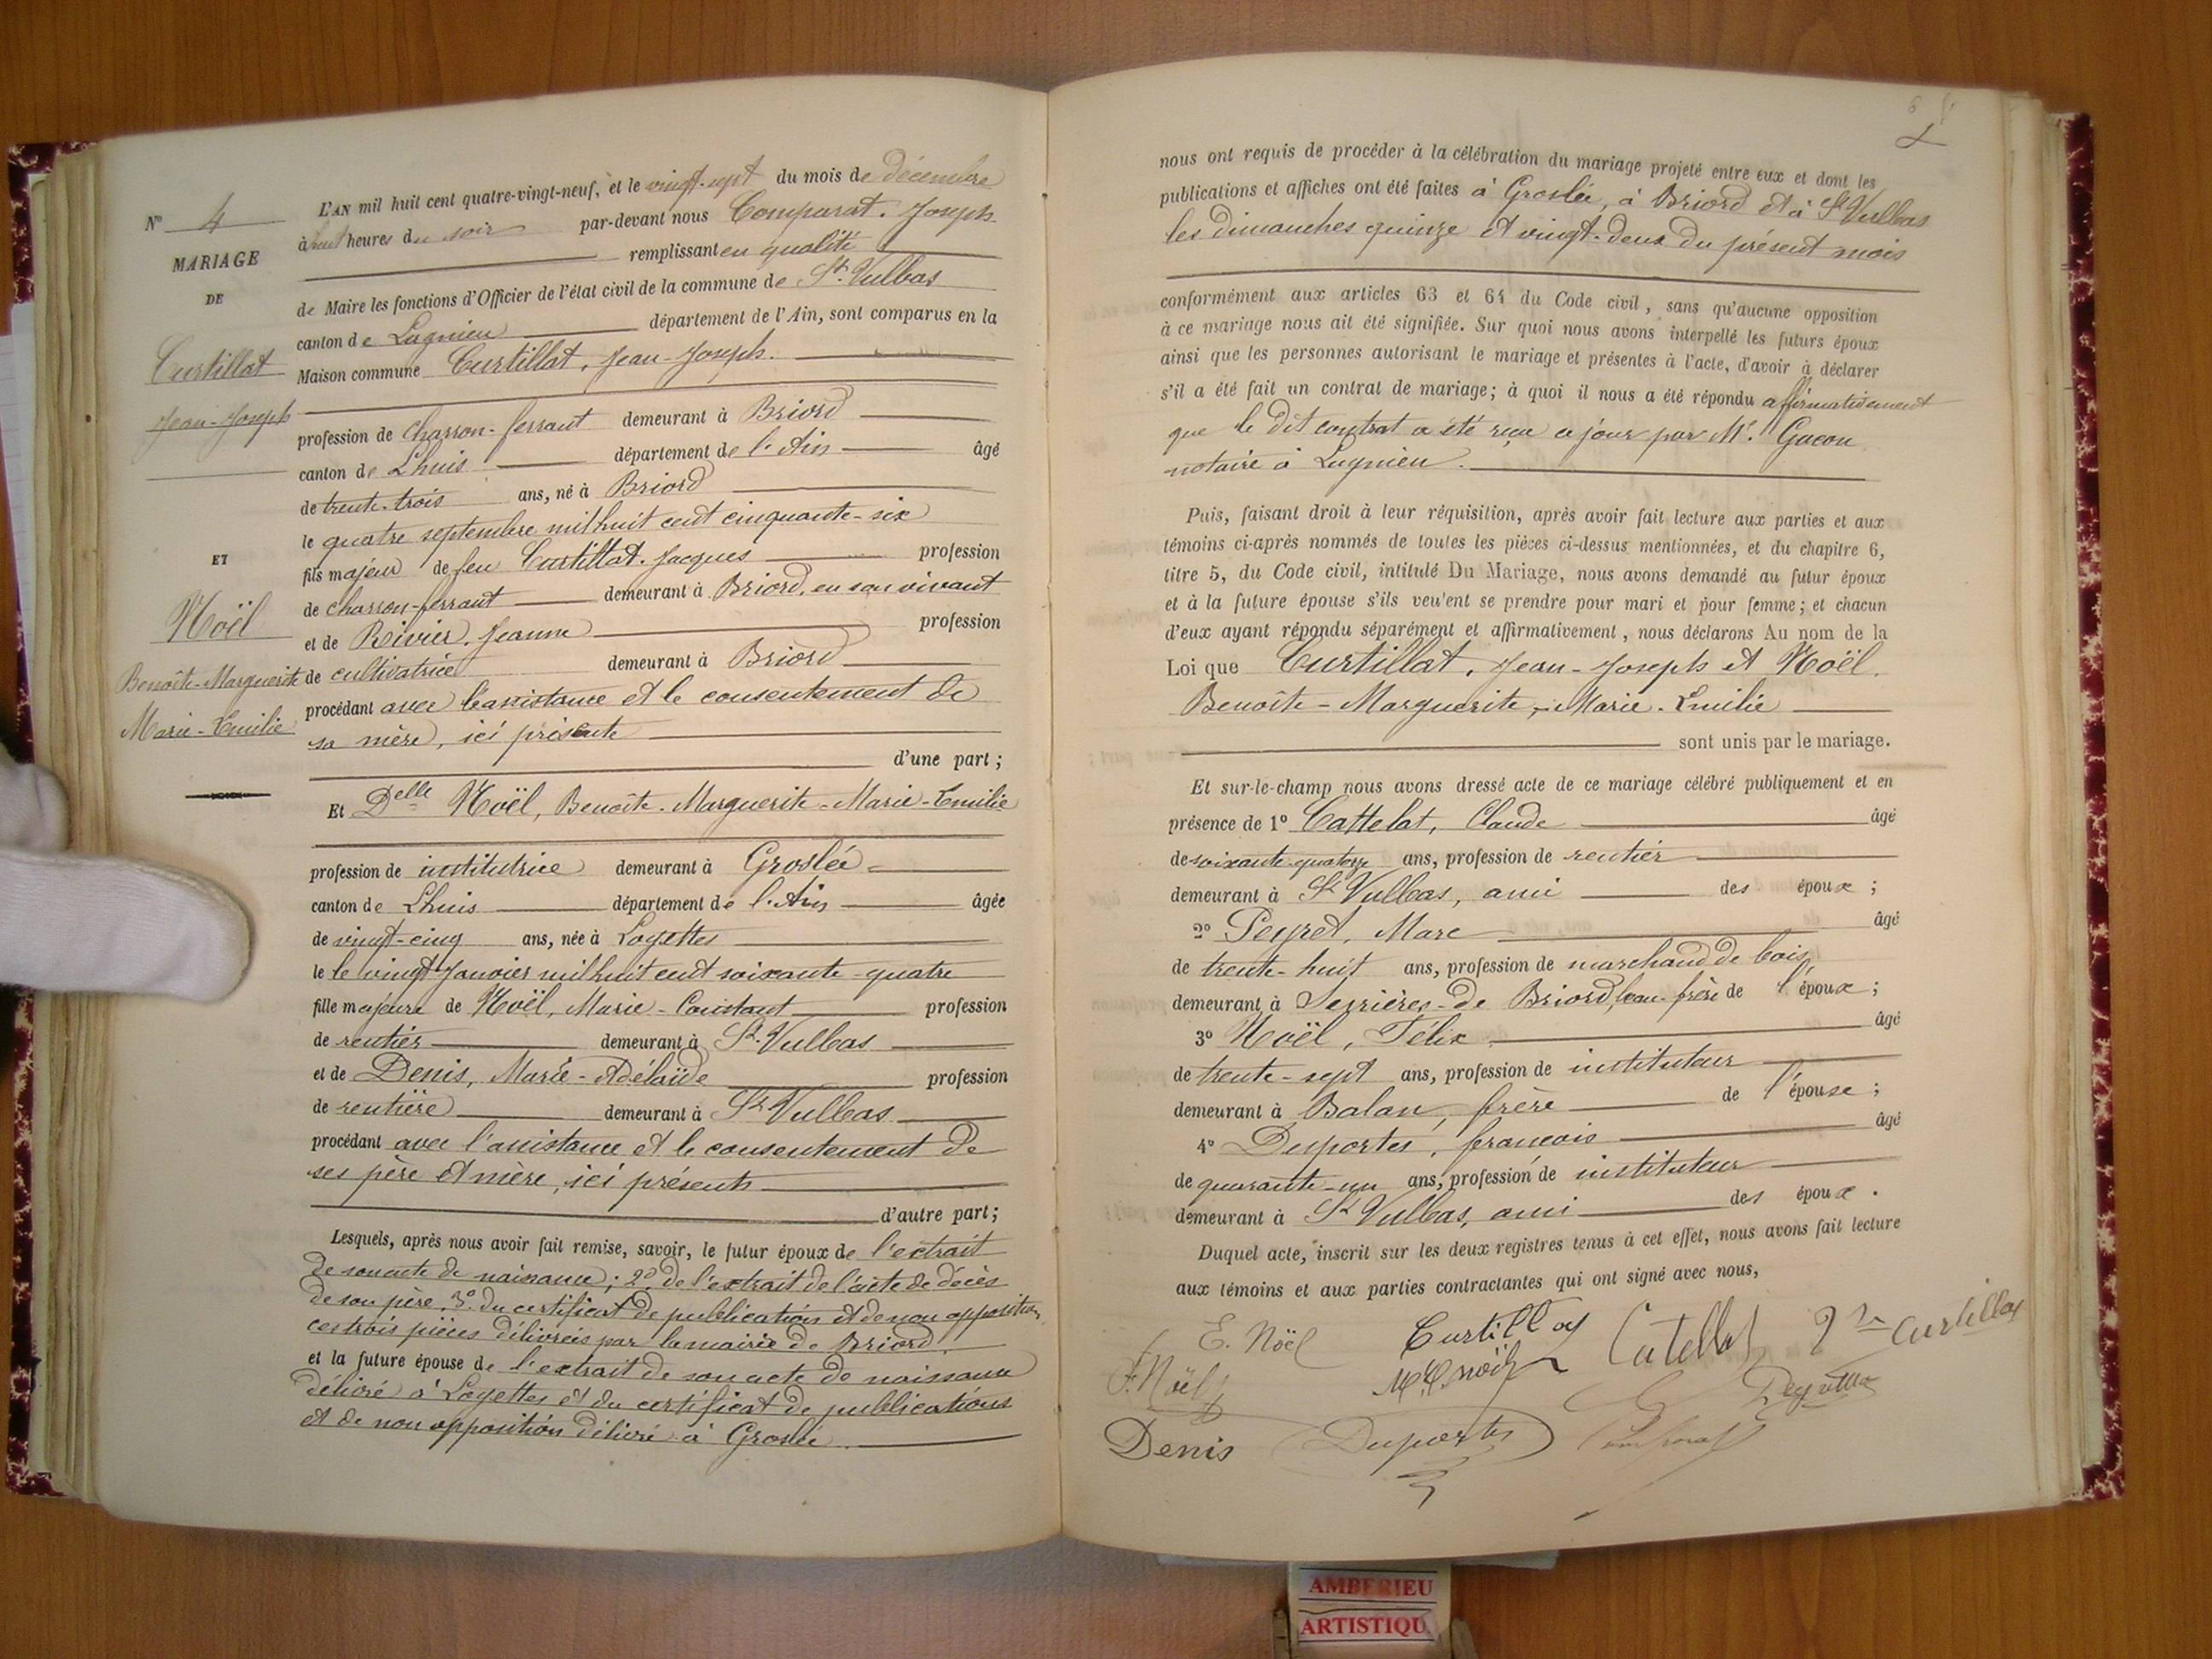 N° 4
MARIAGE
DE
Curtillat
Jean-Joseph
ET
Noël
Benoîte-Marguerite
Marie-Emilie
L'AN mil huit cent quatre-vingt-neuf, et le vingt-sept du mois de décembre
à huit heures du soir par-devant nous Comparat. Joseph
remplissant en qualité
de Maire les fonctions d'Officier de l'état civil de la commune de St. Vulbas
canton de Lagnieu département de l'Ain, sont comparus en la
Maison commune Curtillat, Jean-Joseph.
profession de charron-ferrant demeurant à Briord
canton de Lhuis département de l'Ain âgé
de trente-trois ans, né à Briord
le quatre septembre mil huit cent cinquante-six
fils majeur de feu Curtillat. Jacques profession
de charron-ferrant demeurant à Briord, en son vivant
et de Rivier, Jeanne profession
de cultivatrice demeurant à Briord
procédant avec l'assistance et le consentement de
sa mère, ici présente
d'une part;
Et Delle Noël, Benoîte-Marguerite-Marie-Emilie
profession de institutrice demeurant à Groslée
canton de Lhuis département de l'Ain âgée
de vingt-cinq ans, née à Loyettes
le le vingt Janvier mil huit cent soixante-quatre
fille majeure de Noël, Marie-Constant profession
de rentier demeurant à St. Vulbas
et de Denis, Marie-Adélaïde profession
de rentière demeurant à St. Vulbas
procédant avec l'assistance et le consentement de
ses père et mère, ici présents
d'autre part;
Lesquels, après nous avoir fait remise, savoir, le futur époux de l'extrait
de son acte de naissance; 2° de l'extrait de l'acte de décès
de son père, 3° du certificat de publication et de non opposition,
ces trois pièces délivrées par la mairie de Briord.
et la future épouse de l'extrait de son acte de naissance
délivré à Loyettes et du certificat de publications
et de non opposition délivré à Groslée
nous ont requis de procéder à la célébration du mariage projeté entre eux et dont les
publications et affiches ont été faites à Groslée, à Briord et à St Vulbas
les dimanches quinze et vingt-deux du présent mois
conformément aux articles 63 et 64 du Code civil, sans qu'aucune opposition
à ce mariage nous ait été signifiée. Sur quoi nous avons interpellé les futurs époux
ainsi que les personnes autorisant le mariage et présentes à l'acte, d'avoir à déclarer
s'il a été fait un contrat de mariage; à quoi il nous a été répondu affirmativement
que le dit contrat a été reçu ce jour par Me. Gacon
notaire à Lagnieu.
Puis, faisant droit à leur réquisition, après avoir fait lecture aux parties et aux
témoins ci-après nommés de toutes les pièces ci-dessus mentionnées, et du chapitre 6,
titre 5, du Code civil, intitulé Du Mariage, nous avons demandé au futur époux
et à la future épouse s'ils veulent se prendre pour mari et pour femme; et chacun
d'eux ayant répondu séparément et affirmativement, nous déclarons Au nom de la
Loi que Curtillat, Jean-Joseph et Noël.
Benoîte-Marguerite-Marie-Emilie
sont unis par le mariage.
Et sur-le-champ nous avons dressé acte de ce mariage célébré publiquement et en
présence de 1° Cattelat, Claude âgé
de soixante-quatorze ans, profession de rentier
demeurant à St Vulbas, ami des époux;
2° Peyret, Marc âgé
de trente-huit ans, profession de marchand de bois,
demeurant à Serrières-de Briord, beau-frère de l'époux;
3° Noël, Félix âgé
de trente-sept ans, profession de instituteur
demeurant à Balan, frère de l'épouse;
4° Desportes, françois âgé
de quarante-un ans, profession de instituteur
demeurant à St Vulbas, ami des époux.
Duquel acte, inscrit sur les deux registres tenus à cet effet, nous avons fait lecture
aux témoins et aux parties contractantes qui ont signé avec nous,
E. Noël Curtillat Catellat Curtillat
F. Noël M. C. noël
Denis Desportes
AMBERIEU
ARTISTIQU